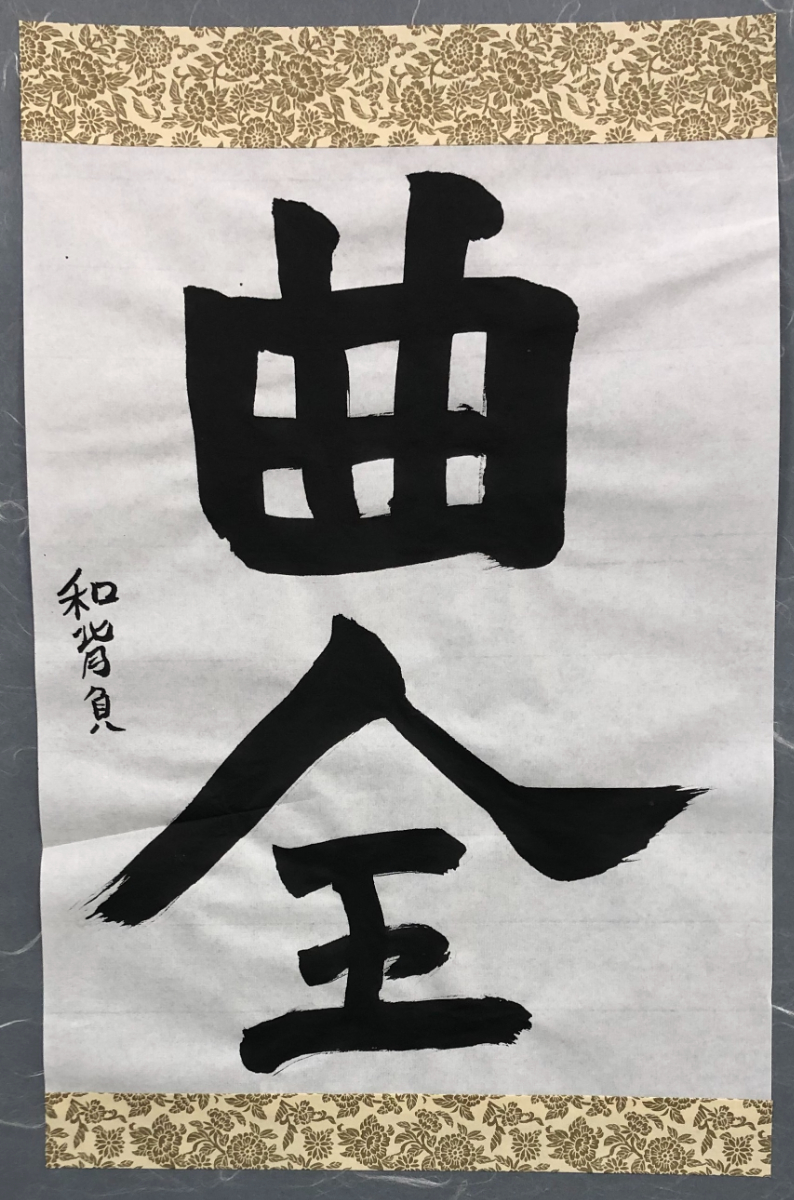 曲全
和背負